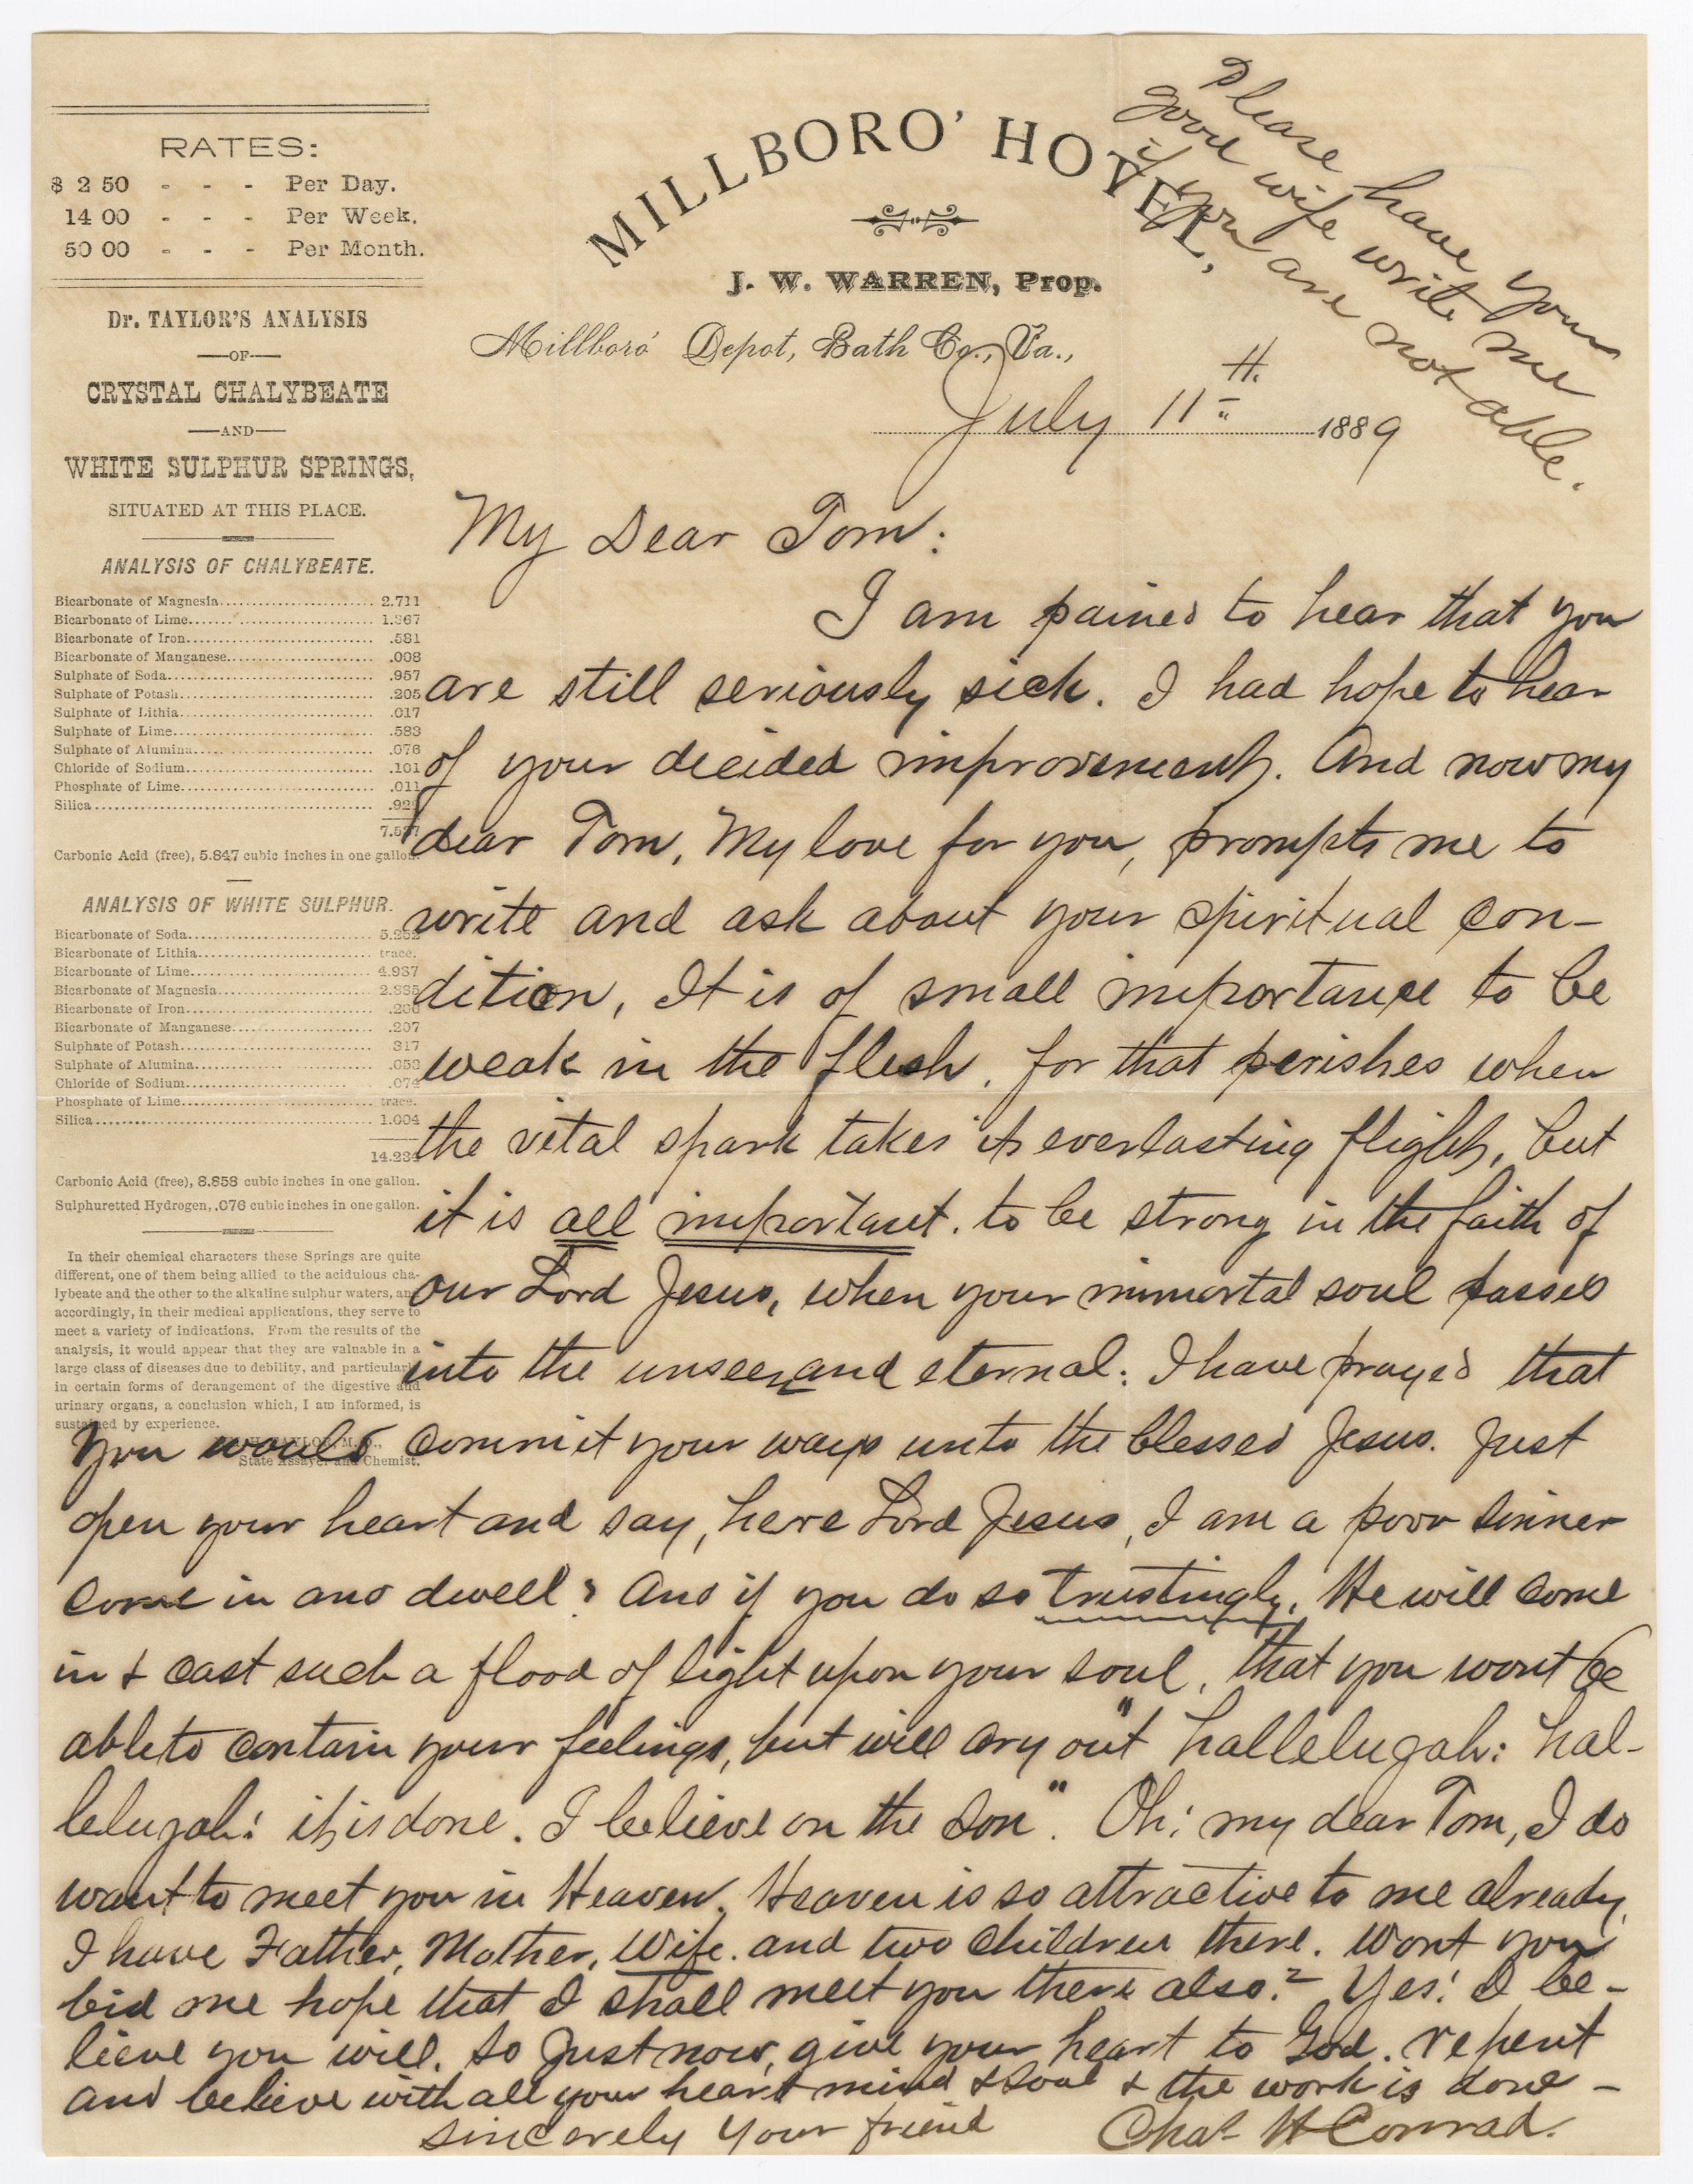 RATES:
$ 2 50 - - - Per Day.
14 00 - - - Per Week.
50 00 - - - Per Month.
Dr. TAYLOR'S ANALYSIS
—OF—
CRYSTAL CHALYBEATE
—AND—
WHITE SULPHUR SPRINGS,
SITUATED AT THIS PLACE.
ANALYSIS OF CHALYBEATE.
Bicarbonate of Magnesia 2.711
Bicarbonate of Lime 1.367
Bicarbonate of Iron .581
Bicarbonate of Manganese .008
Sulphate of Soda .957
Sulphate of Potash .205
Sulphate of Lithia .017
Sulphate of Lime .583
Sulphate of Alumina .076
Chloride of Sodium .101
Phosphate of Lime .011
Silica
Carbonic Acid (free), 5.847 cubic inches in one gallon.
ANALYSIS OF WHITE SULPHUR.
Bicarbonate of Soda
Bicarbonate of Lithia trace.
Bicarbonate of Lime 4.937
Bicarbonate of Magnesia
Bicarbonate of Iron
Bicarbonate of Manganese .207
Sulphate of Potash 317
Sulphate of Alumina
Chloride of Sodium .074
Phosphate of Lime trace.
Silica 1.004
14.234
Carbonic Acid (free), 8.858 cubic inches in one gallon.
Sulphuretted Hydrogen, .076 cubic inches in one gallon.
In their chemical characters these Springs are quite
different, one of them being allied to the acidulous cha-
lybeate and the other to the alkaline sulphur waters, and
accordingly, in their medical applications, they serve to
meet a variety of indications. From the results of the
analysis, it would appear that they are valuable in a
large class of diseases due to debility, and particularly
in certain forms of derangement of the digestive and
urinary organs, a conclusion which, I am informed, is
sustained by experience.
TAYLOR, M. D.,
State Assayer and Chemist.
MILLBORO' HOTEL,
J. W. WARREN, Prop.
Millboro' Depot, Bath Co., Va.,
July 11th 1889
Please have your
good wife write me
if you are not able.
My Dear Tom:
I am pained to hear that you
are still seriously sick. I had hope to hear
of your decided improvement. And now my
dear Tom, My love for you, prompts me to
write and ask about your spiritual con-
dition, It is of small importance to be
weak in the flesh, for that perishes when
the vital spark takes its everlasting flight, but
it is all important. to be strong in the faith of
our Lord Jesus, when your immortal soul passes
into the unseen and eternal: I have prayed that
you would commit your ways unto the blessed Jesus. Just
open your heart and say, here Lord Jesus, I am a poor sinner
come in and dwell? And if you do so trustingly, He will come
in & cast such a flood of light upon your soul, that you wont be
able to contain your feelings, but will cry out "hallelugah: hal-
lelugah! it is done. I believe on the Son". Oh! my dear Tom, I do
want to meet you in Heaven, Heaven is so attractive to me already,
I have Father, Mother, Wife. and two children there. Wont you
bid me hope that I shall meet you there also? Yes! I be-
lieve you will. So Just now, give your heart to God. repent
and believe with all your heart mind & soul & the work is done –
Sincerely Your friend Chas H Conrad.